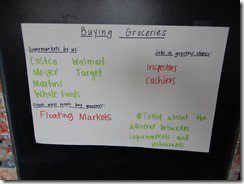 Buying Groceries
Supermarkets by us:
Costco Walmart
Meijer Target
Martins
Whole Foods
Jobs in grocery stores:
inspectors
cashiers
other ways people buy groceries:
Floating Markets
Talked about the
difference between
supermarkets and
restaurants